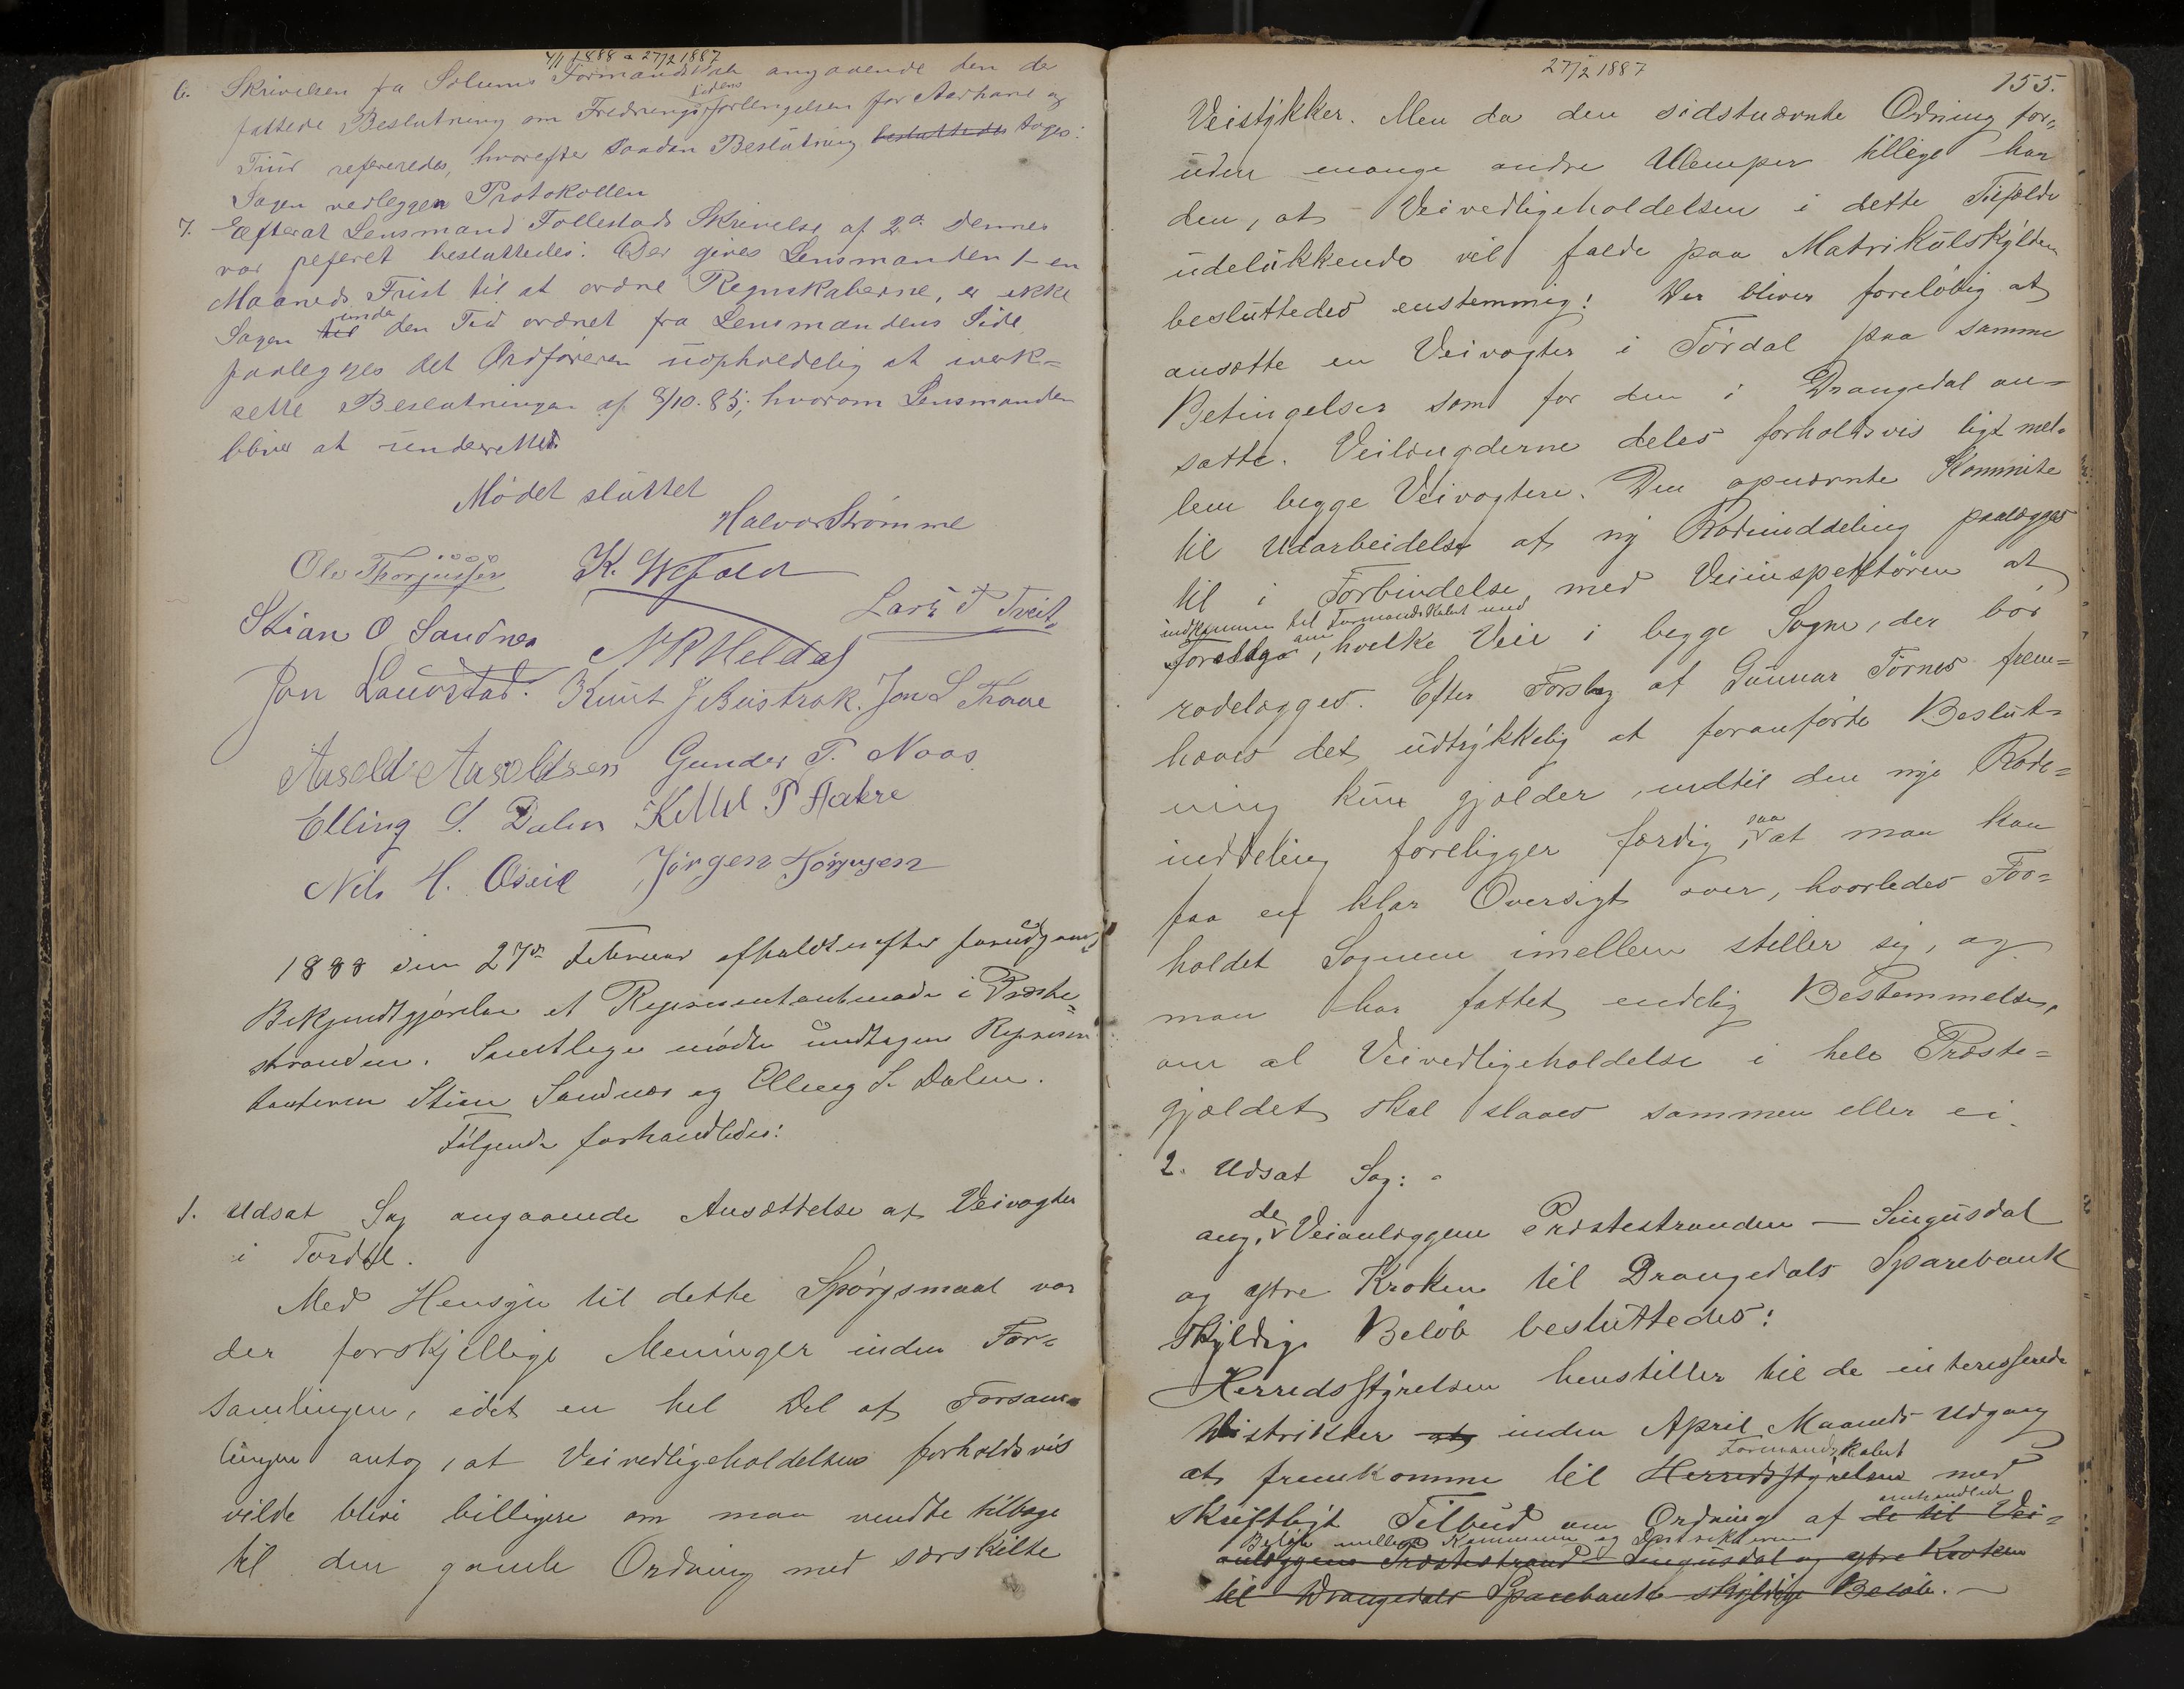 4/1 1888 a 27/2 1887
6. Skrivelsen fra Solums Formandskab angaaende den der
fattede Beslutning om Fredningstidens forlængelsen for Aarhane og
Tiur refereredes, hvorefter saadan Beslutning besluttedes toges:
Sagen vedlegges Protokollen
7. Efterat Lensmand Tollestads Skrivelse af 2den dennes
var referet besluttedes: Der gives Lensmanden 1 en
Maaneds Frist til at ordne Regnskaberne, er ikke
Sagen til inden den Tid ordnet fra Lensmandens Side
paalegges det Ordføreren uopholdelig at iverk=
sette Beslutningen af 8/10. 85; hvorom Lensmanden
bliver at underette.
Mødet sluttet
Halvor Strømme
Ole Thorjussen K. Wefald
Lars T Tveit
Stian O Sandnes N R Heldal
Jon Lauvstad. Knut J Bustrak. Jon S Thove
Aasold Aasoldsen Gunder T. Naas
Elling S. Dalen Kittil P Aakre
Nils H. Oseid Jørgen Jørgensen
1888 den 27de Februar afholdtes efter forudgaaend
Bekjendtgjørelse et Representantmøde i Præste=
stranden. Samtlige mødte undtagen Represen
tanterne Stian Sandnes og Elling S. Dalen.
Følgende forhandledes:
1. Udsat Sag angaaende Ansættelse af Veivogter
i Tørdal.
Med Hensyn til dette Spørgsmaal var
der forskjellige Meninger inden For=
samlingen, idet en hel Del af Forsam=
lingen antog, at Veivedligeholdelsen forholdsvis
vilde blive billigere om man vendte tilbage
til den gamle Ordning med særskilte
27/2 1887
155.
Veistykker. Men da den sidstnævnte Ordning for=
uden mange andre Ulemper tillige har
den, at Veivedligeholdelsen i dette Tilfælde
udelukkende vil falde paa Matrikulskylden
besluttedes enstemmig: Der bliver foreløbig at
ansætte en Veivogter i Tørdal paa samme
Betingelser som for den i Drangedal an=
satte. Veilængderne deles forholdsvis ligt mel=
lem begge Veivogtere. Den opnævnte Kommite
til Udarbeidelse af ny Rodeinddeling paalægges
til i Forbindelse med Veiinspektøren at
indkomme til Formandskabet med
Forslag om, hvilke Veie i begge Sogne, der bør
rodelægges. Efter Forslag af Gunnar Tørnes frem=
hæves det udtrykkelig at foranførte Beslut=
ning kun gjælder, indtil den nye Rode=
inddeling foreligger færdig, saa at man kan
faa en klar Oversigt over, hvorledes For=
holdet Sognene imellem stiller sig, og
man har fattet endelig Bestemmelse,
om al Veivedligeholdelse i hele Præste=
gjældet skal slaaes sammen eller ei.
2. Udsat Sag:
ang. de Veianlæggene Præstestranden — Singusdal
og ytre Kroken til Drangedals Sparebank
skyldige Beløb besluttedes:
Herredsstyrelsen henstiller til de interesserede
Distrikter at inden April Maaneds Udgang
Formandskabet
at fremkomme til Herredsstyrelsen med
omhandlede
skriftligt Tilbud om Ordning af de til Vei=
Beløb mellem Kommunen og Distrikterne
anlæggene Præstestrand – Singusdal og ytre Kroken
til Drangedals Sparebank skyldige Beløb. —